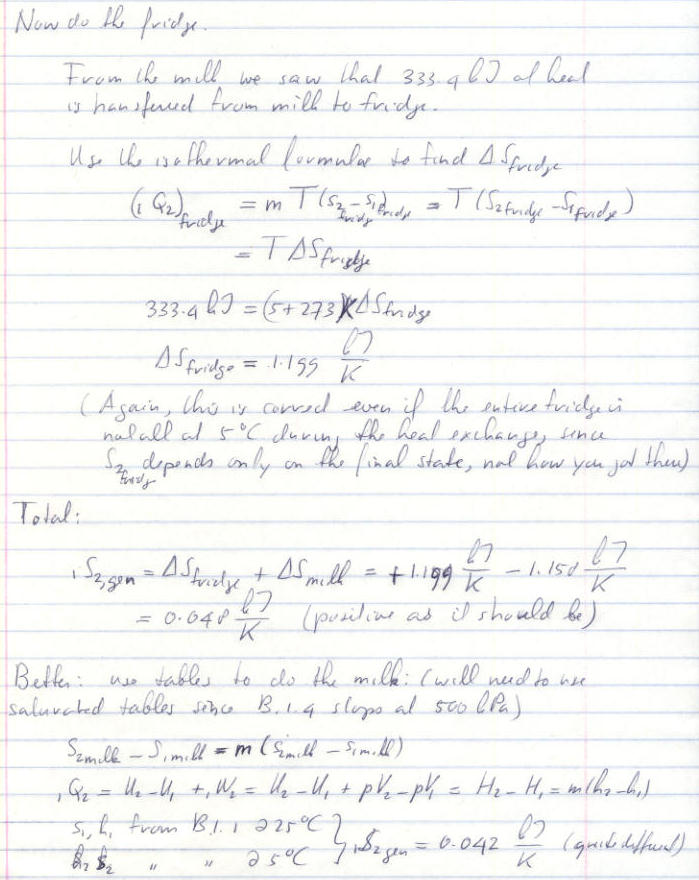 Now do the fridge.
From the milk we saw that 333.4 kJ of heat
is transferred from milk to fridge.
Use the isothermal formulae to find ΔS_fridge
(₁Q₂)_fridge = m T(s₂ - s₁)_fridge = T(S₂fridge - S₁fridge)
= T ΔS_fridge
333.4 kJ = (5+273)K ΔS_fridge
ΔS_fridge = 1.199 kJ/K
(Again, this is correct even if the entire fridge is
not all at 5°C during the heat exchange, since
S₂fridge depends only on the final state, not how you got there)
Total:
₁S₂,gen = ΔS_fridge + ΔS_milk = +1.199 kJ/K - 1.150 kJ/K
= 0.048 kJ/K (positive as it should be)
Better: use tables to do the milk: (will need to use
saturated tables since B.1.4 stops at 500 kPa)
S₂milk - S₁milk = m(s₂milk - s₁milk)
₁Q₂ = U₂ - U₁ + ₁W₂ = U₂ - U₁ + pV₂ - pV₁ = H₂ - H₁ = m(h₂ - h₁)
s₁, h₁ from B.1.1 @ 25°C } ₁S₂gen = 0.042 kJ/K (quite different)
h₂ s₂ " " @ 5°C